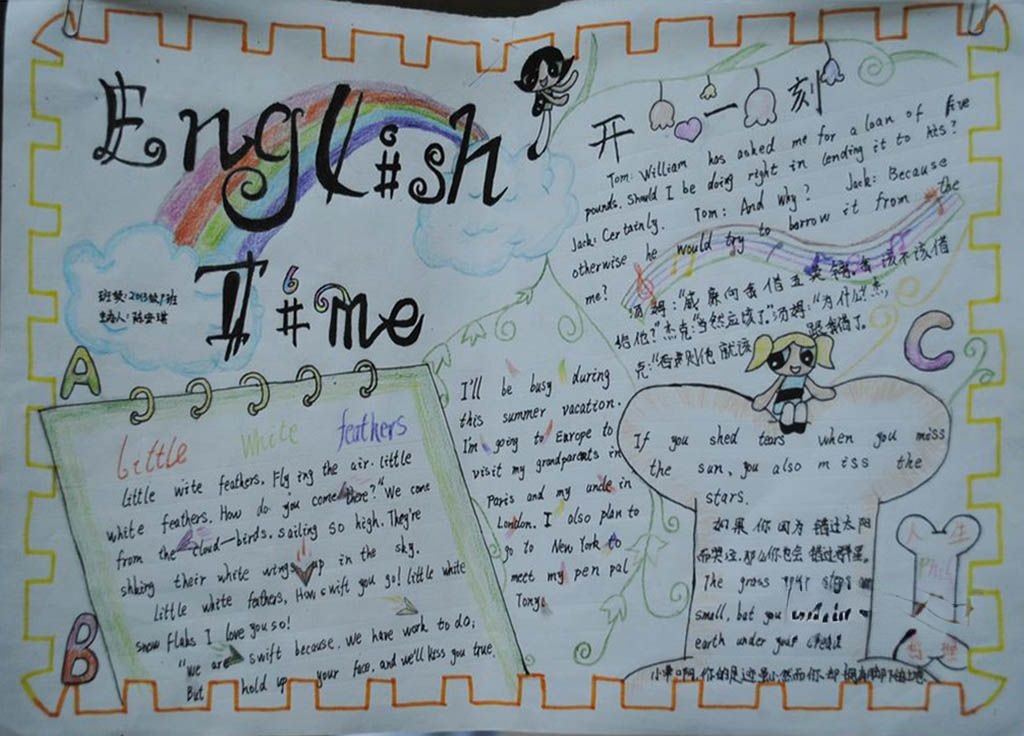 English Time
班级: 2013级1班
主办人: 陈安琪
A
Little White feathers
Little wite feathers. Flying the air. little
white feathers. How do you come there?" We come
from the cloud—birds. sailing so high. They're
shking their white wings up in the sky.
Little white feathers, How swift you go! little white
snow flabs I love you so!
"We are swift because. we have work to do;
But hold up your face, and we'll kiss you true.
B
I'll be busy during
this summer vacation.
I'm going to Europe to
visit my grandparents in
Paris and my uncle in
London. I also plan to
go to New York to
meet my pen pal
Tony.
开心一刻
Tom: William has asked me for a loan of five
pounds. Should I be doing right in lending it to his?
Jack: Certainly. Tom: And Why? Jack: Because
otherwise he would try to borrow it from the
me?
汤姆:"威廉向我借五英镑,我该不该借
给他?"杰克:"当然应该了."汤姆:"为什么?"杰
克:"否则他就该跟我借了.
C
If you shed tears when you miss
the sun, you also miss the
stars.
如果你因为错过太阳
而哭泣.那么你也会错过群星.
The grass your steps
small, but you
earth under your
小草啊,你的足迹虽小然而你却拥有脚下的土地
人生
Phil
哲理